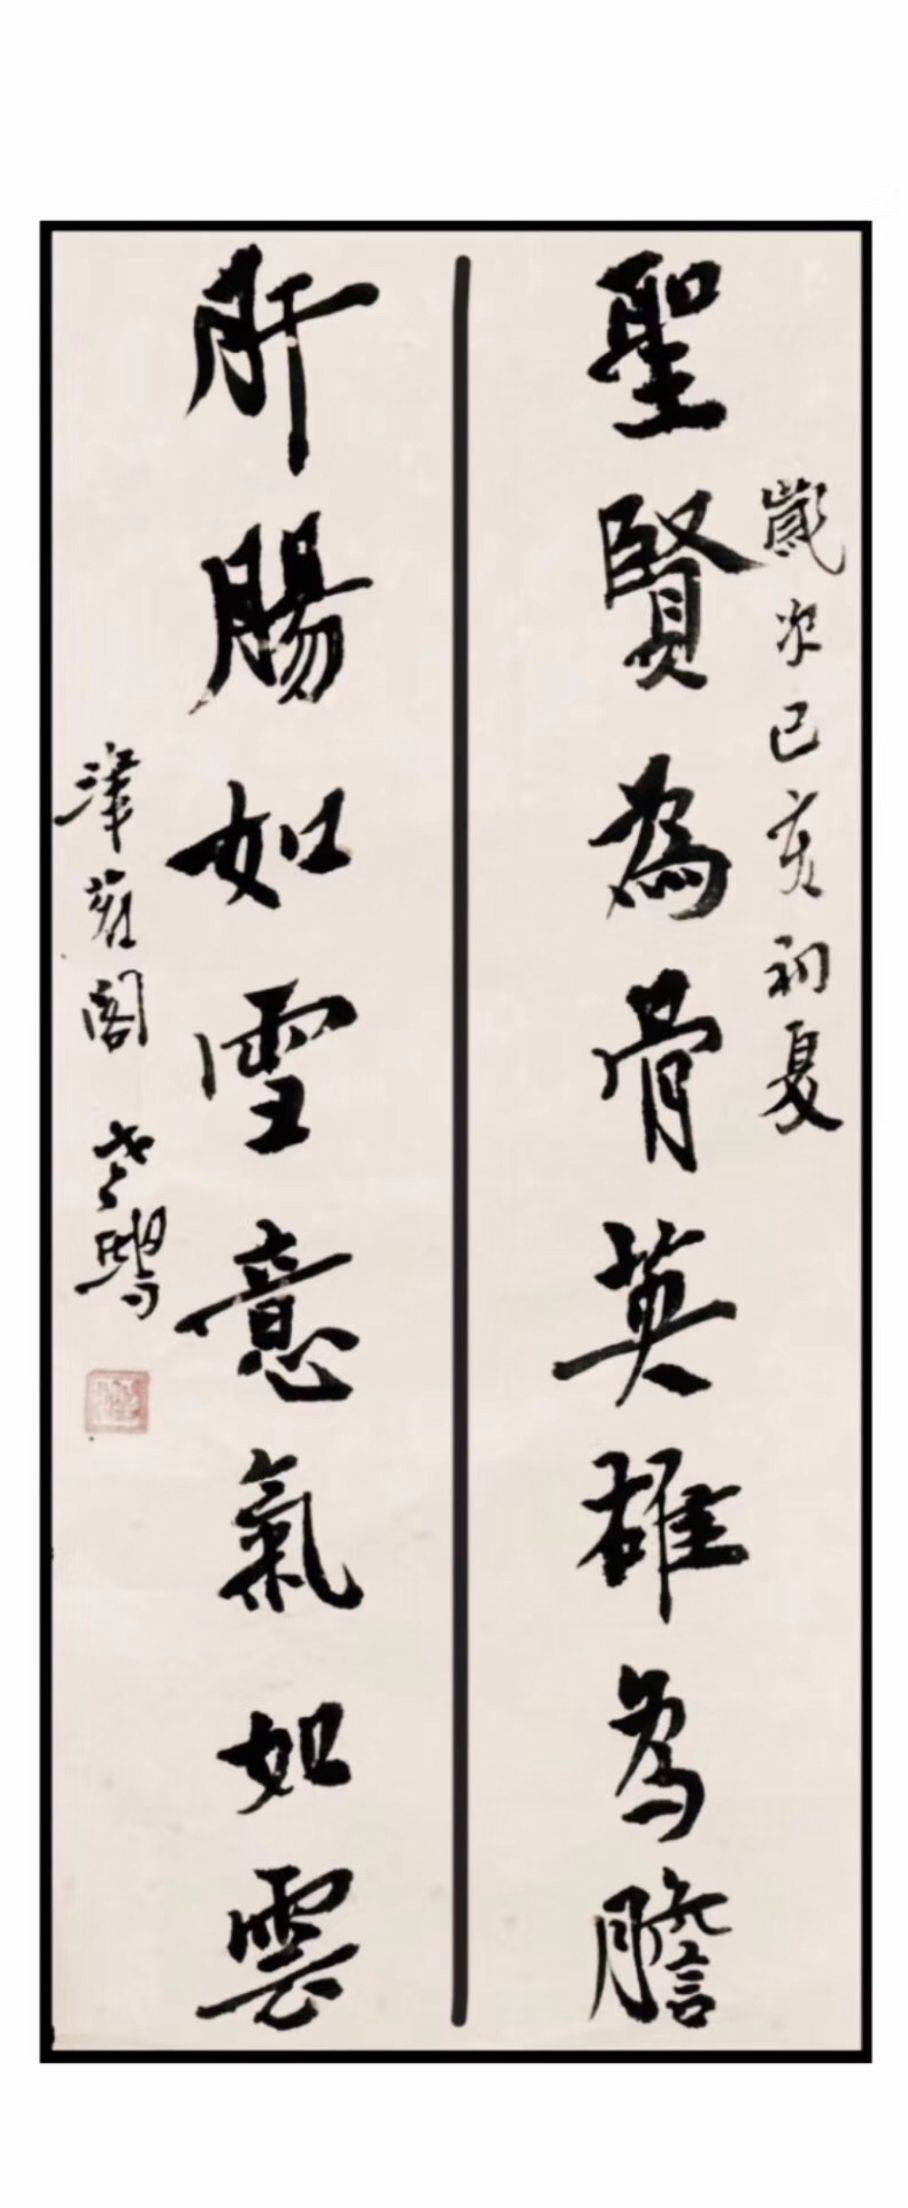 歲次己亥初夏
聖賢為骨英雄為膽
肝腸如雪意氣如雲
津 閣